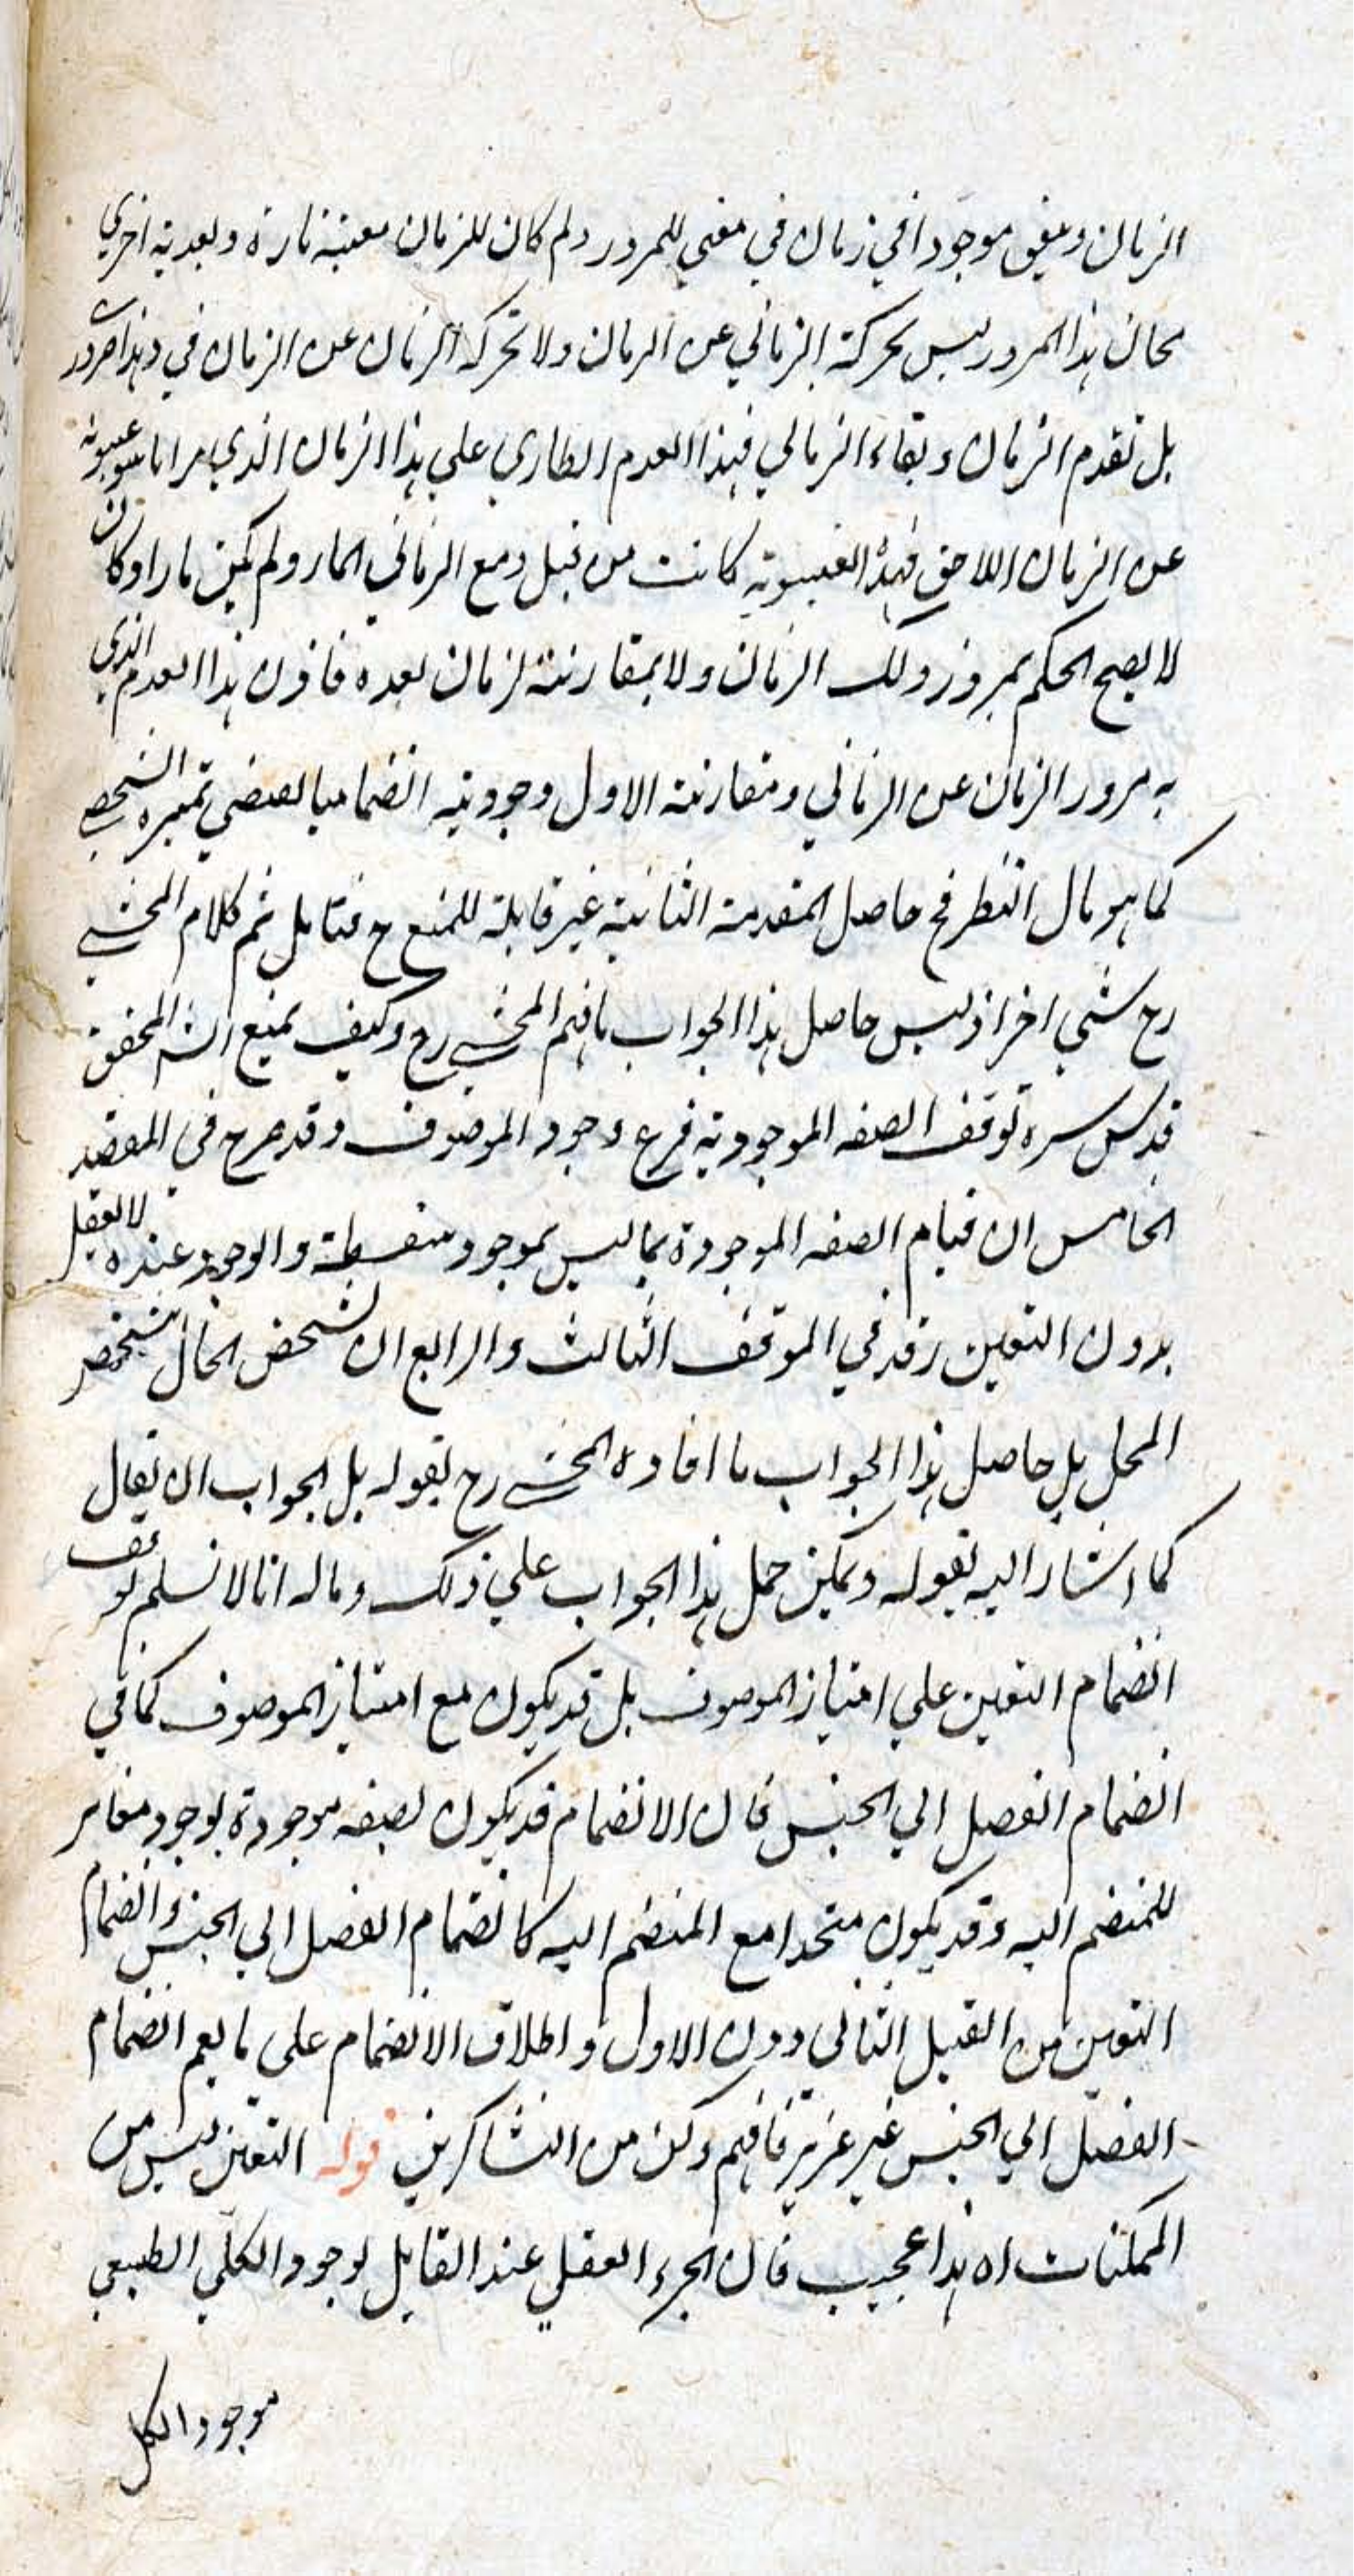 الزمان ويبقى موجودا في زمان في معنى للمرور ولم كان للزمان معية تارة وبعدية اخرى
محان هذا المرور ليس بحركة الزماني عن الزمان ولا تحركه الزمان عن الزمان في وهذا ضرور
بل تقدم الزمان وبقاء الزماني فهذا العدم الطاري على هذا الزمان الذي مر انما هو غيبوبة
عن الزمان اللاحق فهذه الغيبوبة كانت من قبل ومع الزماني المار ولم يكن مارا وكان
لا يصح الحكم بمرور ذلك الزمان ولا بمقارنته لزمان بعده فاذن هذا العدم الذي
به مرور الزمان عن الزماني ومقارنته الاول وجودية انضماميا لمقتضى تميزه الشخصي
كما هو مال النظر فح حاصل المقدمة الثانية غير قابلة للمنع ح فتامل ثم كلام المحشي
رح شي اخر اذ ليس حاصل هذا الجواب ما فهم المحشي رح وكيف يمنع الش المحقق
قدس سره توقف الصفه الموجودية فرع وجود الموصوف وقد صرح في المقصد
الخامس ان قيام الصفه الموجودة بما ليس بموجود سفسطة والوجود عنده لا يعقل
بدون التعين وقد في الموقف الثالث والرابع ان تشخص الحال بتشخص
المحل بل حاصل هذا الجواب ما افاده المحشي رح بقوله بل الجواب ان يقال
كما اشار اليه بقوله ويمكن حمل هذا الجواب على ذلك وماله انا لا نسلم توقف
انضمام التعين على امتياز الموصوف بل قد يكون مع امتياز الموصوف كما في
انضمام الفصل الي الجنس فان الانضمام قد يكون لصفه موجودة بوجود مغاير
للمنضم اليه وقد يكون متحدا مع المنضم اليه كانضمام الفصل الي الجنس وانضمام
التعين من القبيل الثاني دون الاول واطلاق الانضمام على ما يعم انضمام
الفصل الي الجنس غير عزيز فافهم وكن من الشاكرين قوله التعين ليس من
الممكنات اه هذا عجيب فان الجزء العقلي عند القايل بوجود الكلي الطبيعي
موجود الكل